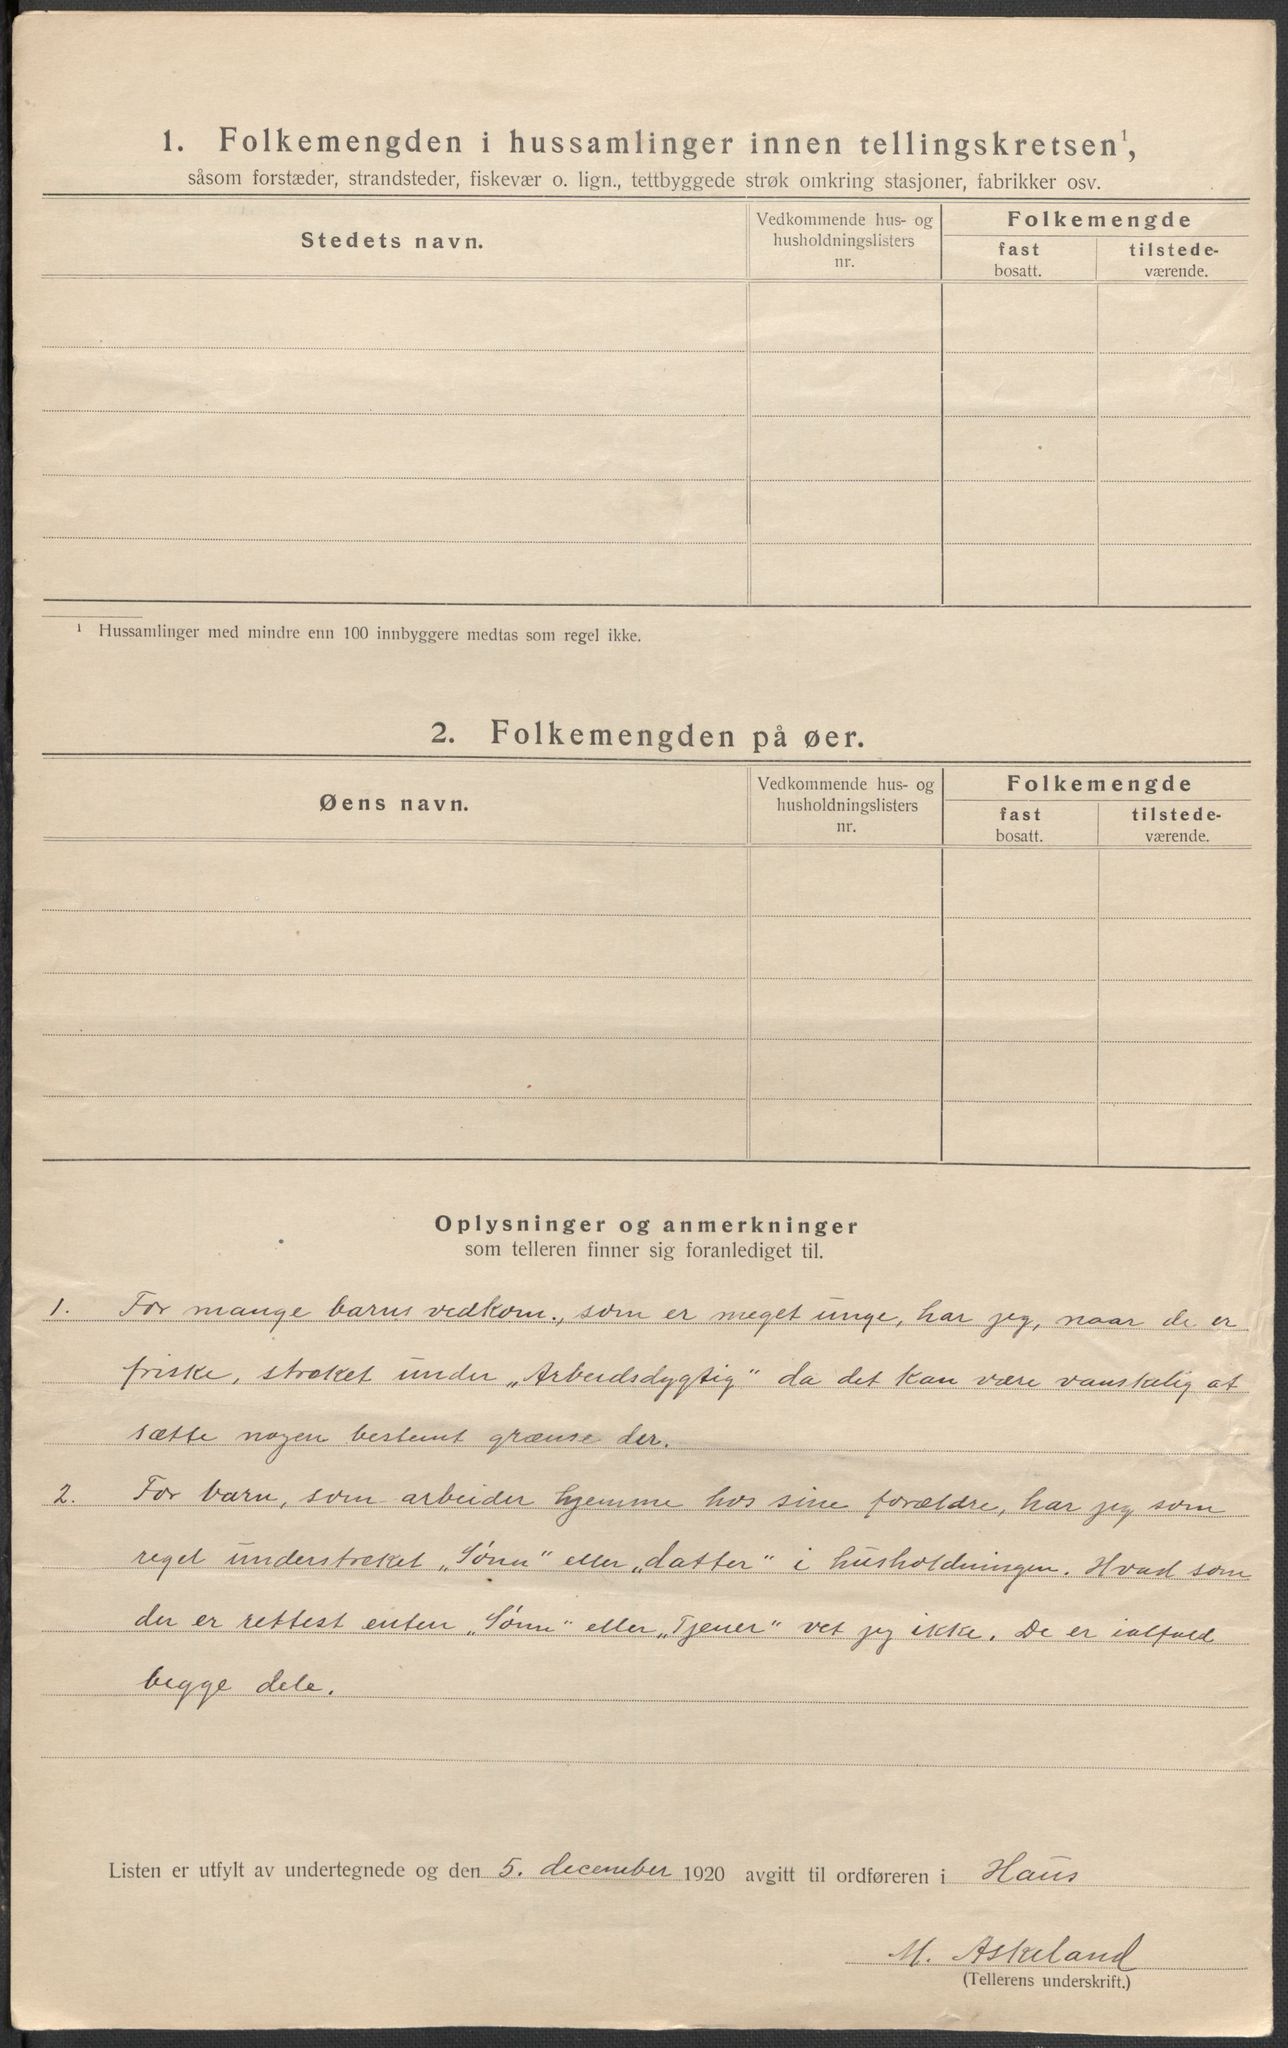 1. Folkemengden i hussamlinger innen tellingskretsen¹,
såsom forstæder, strandsteder, fiskevær o. lign., tettbyggede strøk omkring stasjoner, fabrikker osv.
Stedets navn.
Vedkommende hus- og
husholdningslisters
nr.
Folkemengde
fast
bosatt.
tilstede-
værende.
¹ Hussamlinger med mindre enn 100 innbyggere medtas som regel ikke.
2. Folkemengden på øer.
Øens navn.
Vedkommende hus- og
husholdningslisters
nr.
Folkemengde
fast
bosatt.
tilstede-
værende.
Oplysninger og anmerkninger
som telleren finner sig foranlediget til.
1. For mange barns vedkom., som er meget unge, har jeg, naar de er
friske, strøket under „Arbeidsdygtig" da det kan være vanskelig at
sætte nogen bestemt grænse der.
2. For barn, som arbeider hjemme hos sine forældre, har jeg som
regel understreket „Sønn" eller „datter" i husholdningen. Hvad som
der er rettest enten „Sønn" eller „Tjener" vet jeg ikke. De er ialfald
begge dele.
Listen er utfylt av undertegnede og den 5. december 1920 avgitt til ordføreren i Haus
M. Askeland
(Tellerens underskrift.)